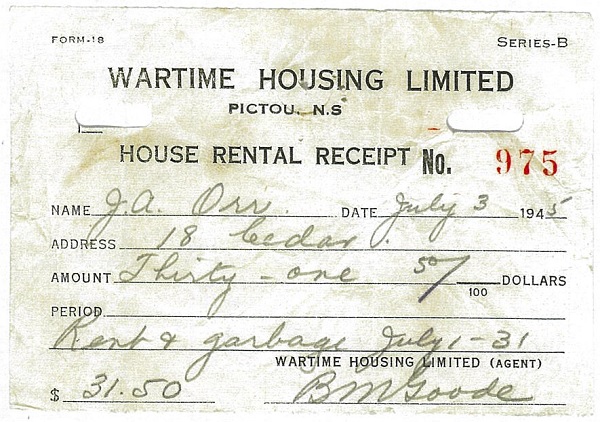 FORM-18 SERIES-B
WARTIME HOUSING LIMITED
PICTOU, N.S
HOUSE RENTAL RECEIPT No. 975
NAME J.A. Orr. DATE July 3 1945
ADDRESS 18 Cedar.
AMOUNT Thirty-one 50/100 DOLLARS
PERIOD
Rent & garbage July 1-31
WARTIME HOUSING LIMITED (AGENT)
$ 31.50 B M Goode